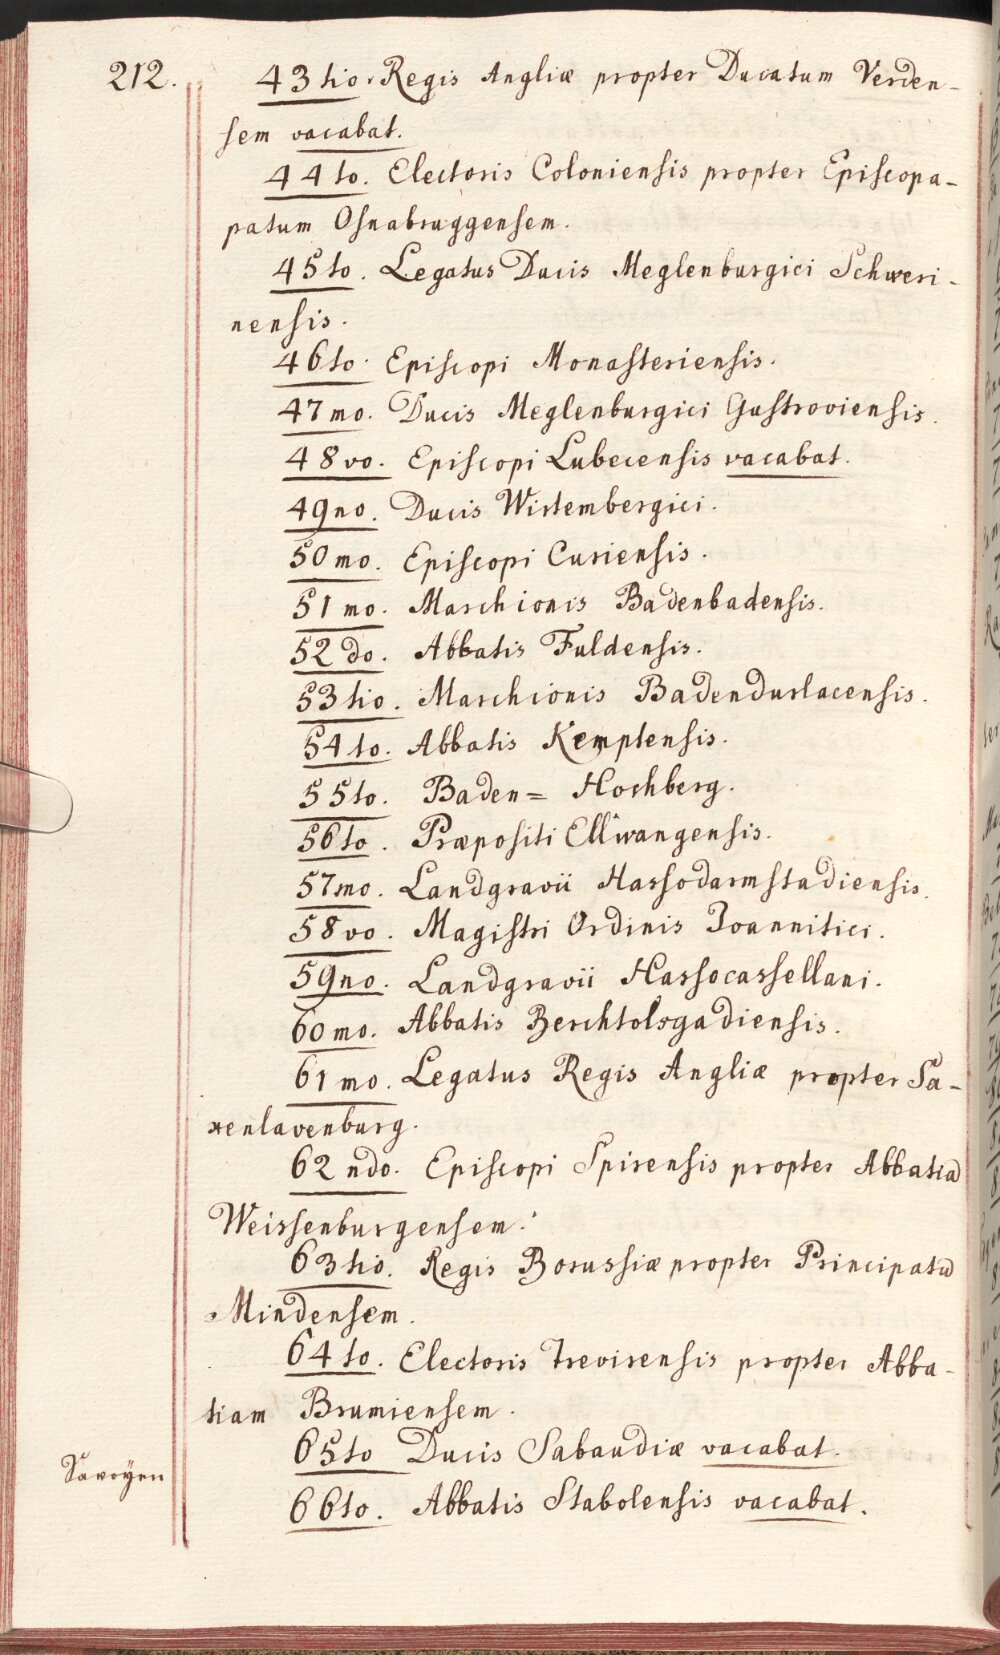 212.
43tio. Regis Angliæ propter Ducatum Verden-
sem vacabat.
44to. Electoris Coloniensis propter Episcopa-
patum Osnabruggensem.
45to. Legatus Ducis Meglenburgici Schweri-
nensis.
46to. Episcopi Monasteriensis.
47mo. Ducis Meglenburgici Gustroviensis.
48vo. Episcopi Lubecensis vacabat.
49no. Ducis Wirtembergici.
50mo. Episcopi Curiensis.
51mo. Marchionis Badenbadensis.
52do. Abbatis Fuldensis.
53tio. Marchionis Badendurlacensis.
54to. Abbatis Kemptensis.
55to. Baden= Hochberg.
56to. Præpositi Ellwangensis.
57mo. Landgravii Hassodarmstadiensis.
58vo. Magistri Ordinis Joannitici.
59no. Landgravii Hassocassellani.
60mo. Abbatis Berchtolsgadiensis.
61mo. Legatus Regis Angliæ propter Sa-
xenlavenburg.
62ndo. Episcopi Spirensis propter Abbatia
Weissenburgensem.
63tio. Regis Borussiæ propter Principatu
Mindensem.
64to. Electoris Trevirensis propter Abba-
tiam Brumiensem.
65to Ducis Sabaudiæ vacabat.
Savoyen
66to. Abbatis Stabolensis vacabat.